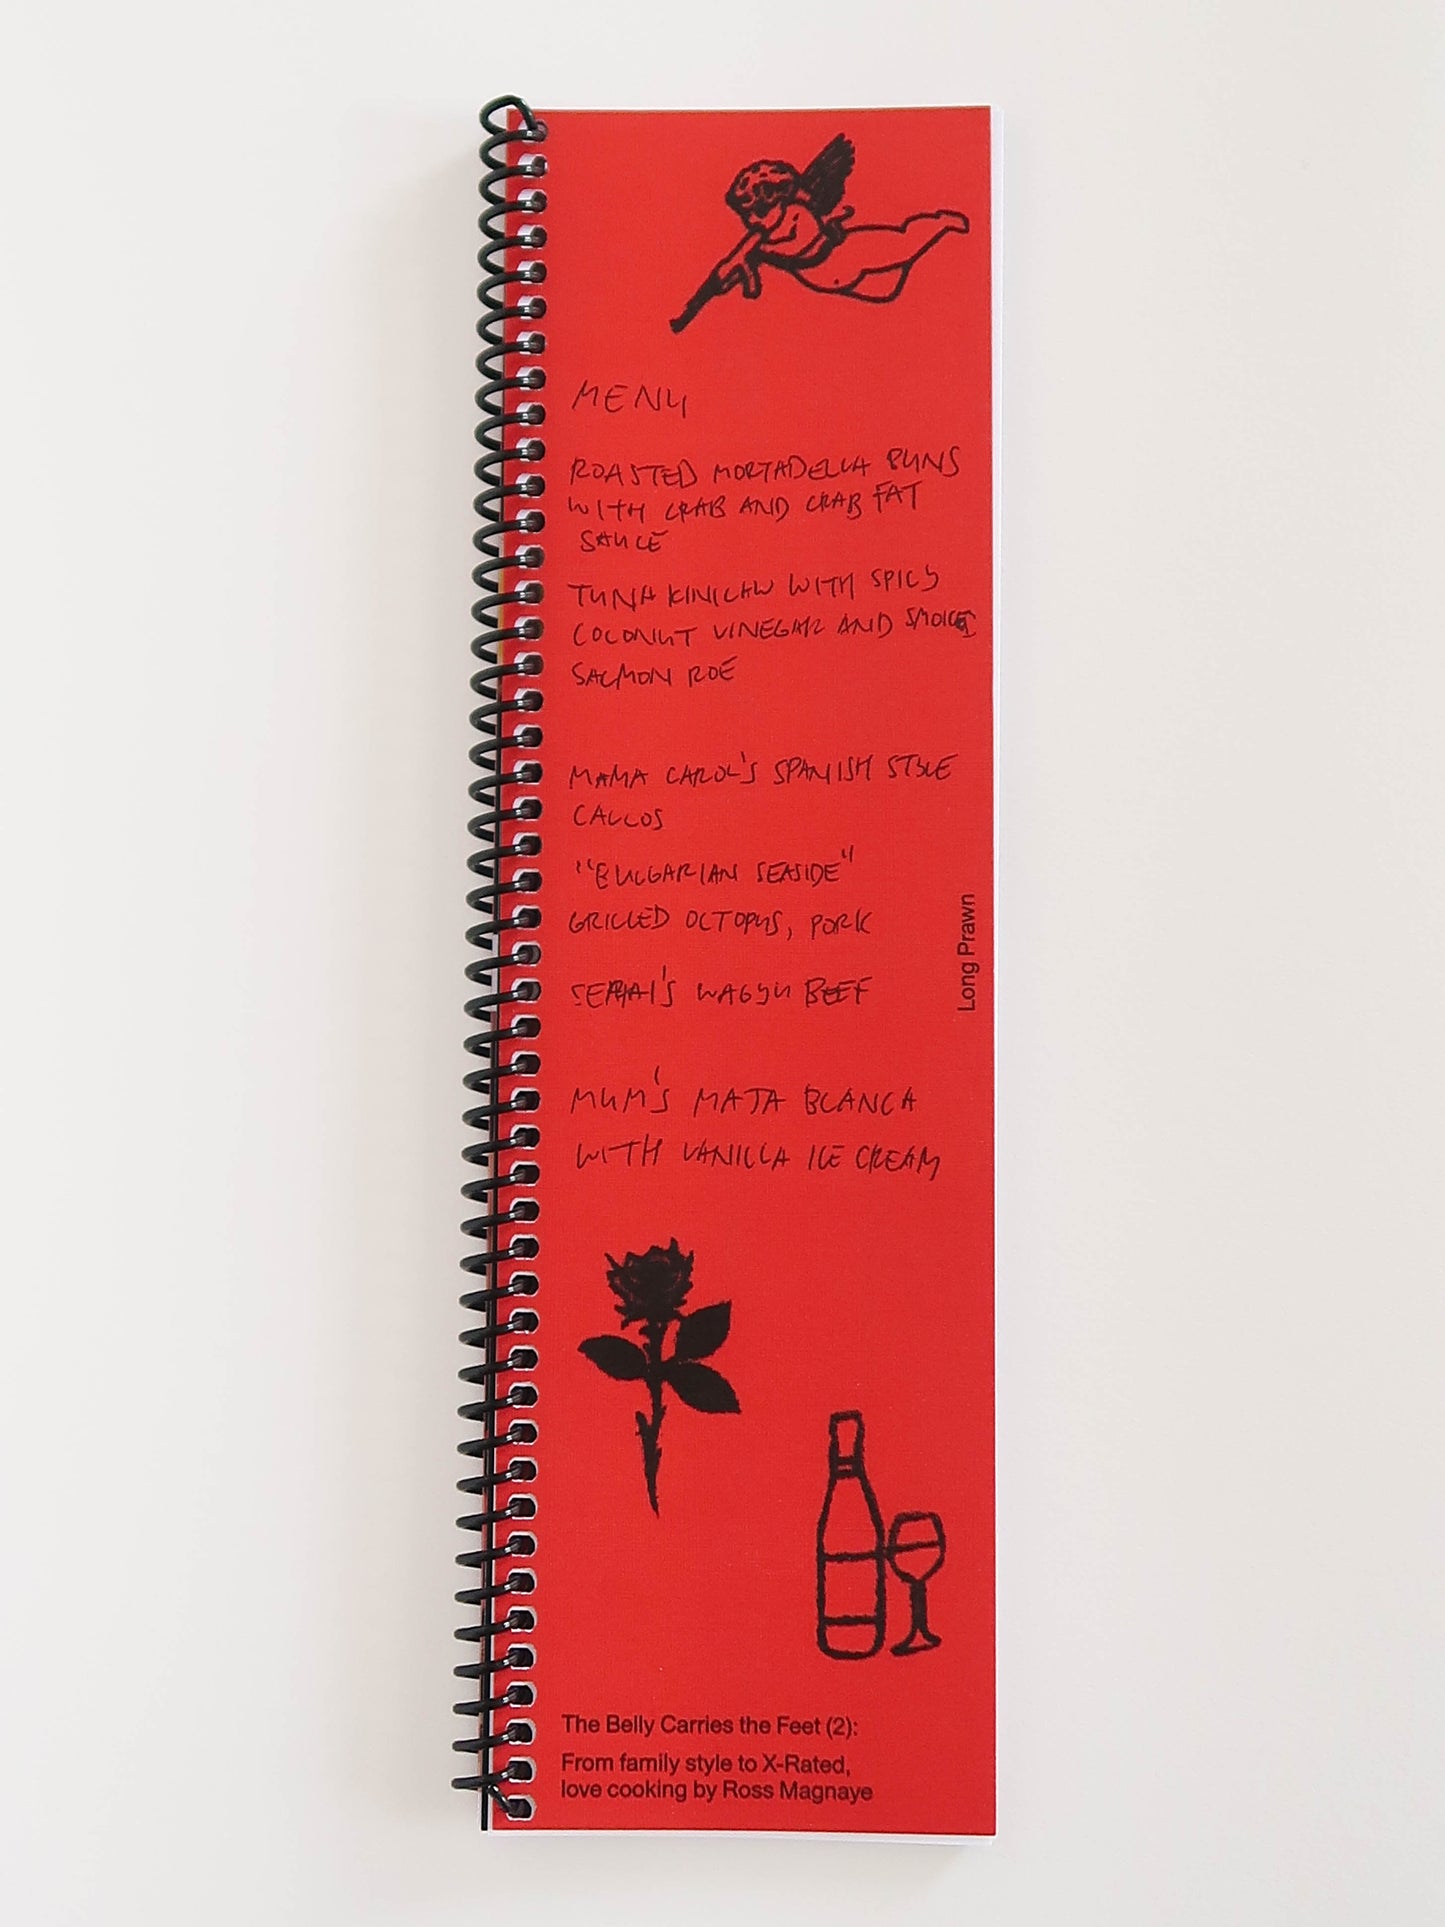 MENU
ROASTED MORTADELLA BUNS
WITH CRAB AND CRAB FAT
SAUCE
TUNA KINILAW WITH SPICY
COCONUT VINEGAR AND SMOKED
SALMON ROE
MAMA CAROL'S SPANISH STYLE
CALLOS
"BULGARIAN SEASIDE"
GRILLED OCTOPUS, PORK
WAGYU BEEF
MUM'S MAJA BLANCA
WITH VANILLA ICE CREAM
Long Prawn
The Belly Carries the Feet (2):
From family style to X-Rated,
love cooking by Ross Magnaye